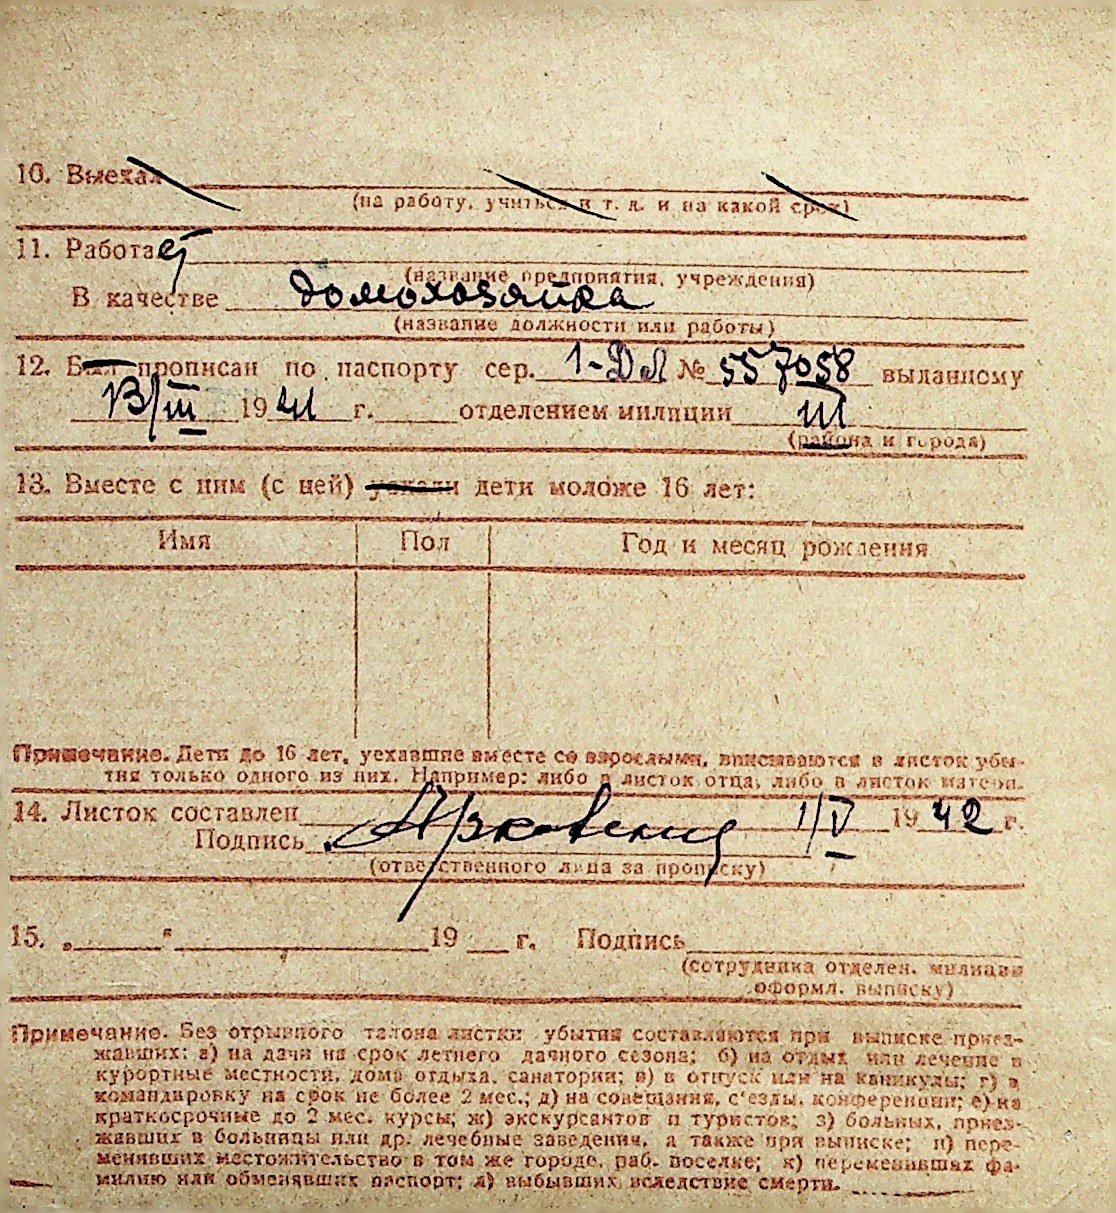 10. Выехал
(на работу, учиться и т. д. и на какой срок)
11. Работает
(название предприятия, учреждения)
В качестве домохозяйка
(название должности или работы)
12. Был прописан по паспорту сер. 1-ДЛ № 557058 выданному
13/III 1941 г. отделением милиции III
(района и города)
13. Вместе с ним (с ней) уехали дети моложе 16 лет:
Имя Пол Год и месяц рождения
Примечание. Дети до 16 лет, уехавшие вместе со взрослыми, вписываются в листок убы-
тия только одного из них. Например: либо в листок отца, либо в листок матери.
14. Листок составлен 1/V 1942 г.
Подпись
(ответственного лица за прописку)
15. „ “ 19 г. Подпись
(сотрудника отделен. милиции
оформл. выписку)
Примечание. Без отрывного талона листки убытия составляются при выписке приез-
жавших: а) на дачи на срок летнего дачного сезона; б) на отдых или лечение в
курортные местности, дома отдыха, санатории; в) в отпуск или на каникулы; г) в
командировку на срок не более 2 мес.; д) на совещания, с'езды, конференции; е) на
краткосрочные до 2 мес. курсы; ж) экскурсантов и туристов; з) больных, приез-
жавших в больницы или др. лечебные заведения, а также при выписке; и) пере-
менявших местожительство в том же городе, раб. поселке; к) переменивших фа-
милию или обменявших паспорт; л) выбывших вследствие смерти.